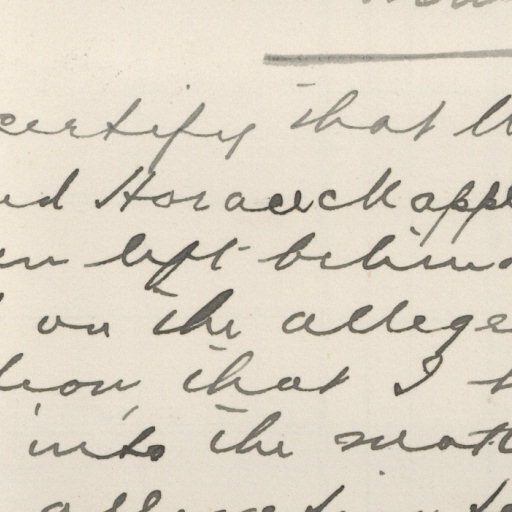 certify that
Horace Kappl
left behind
on the allege
that I
into the matt